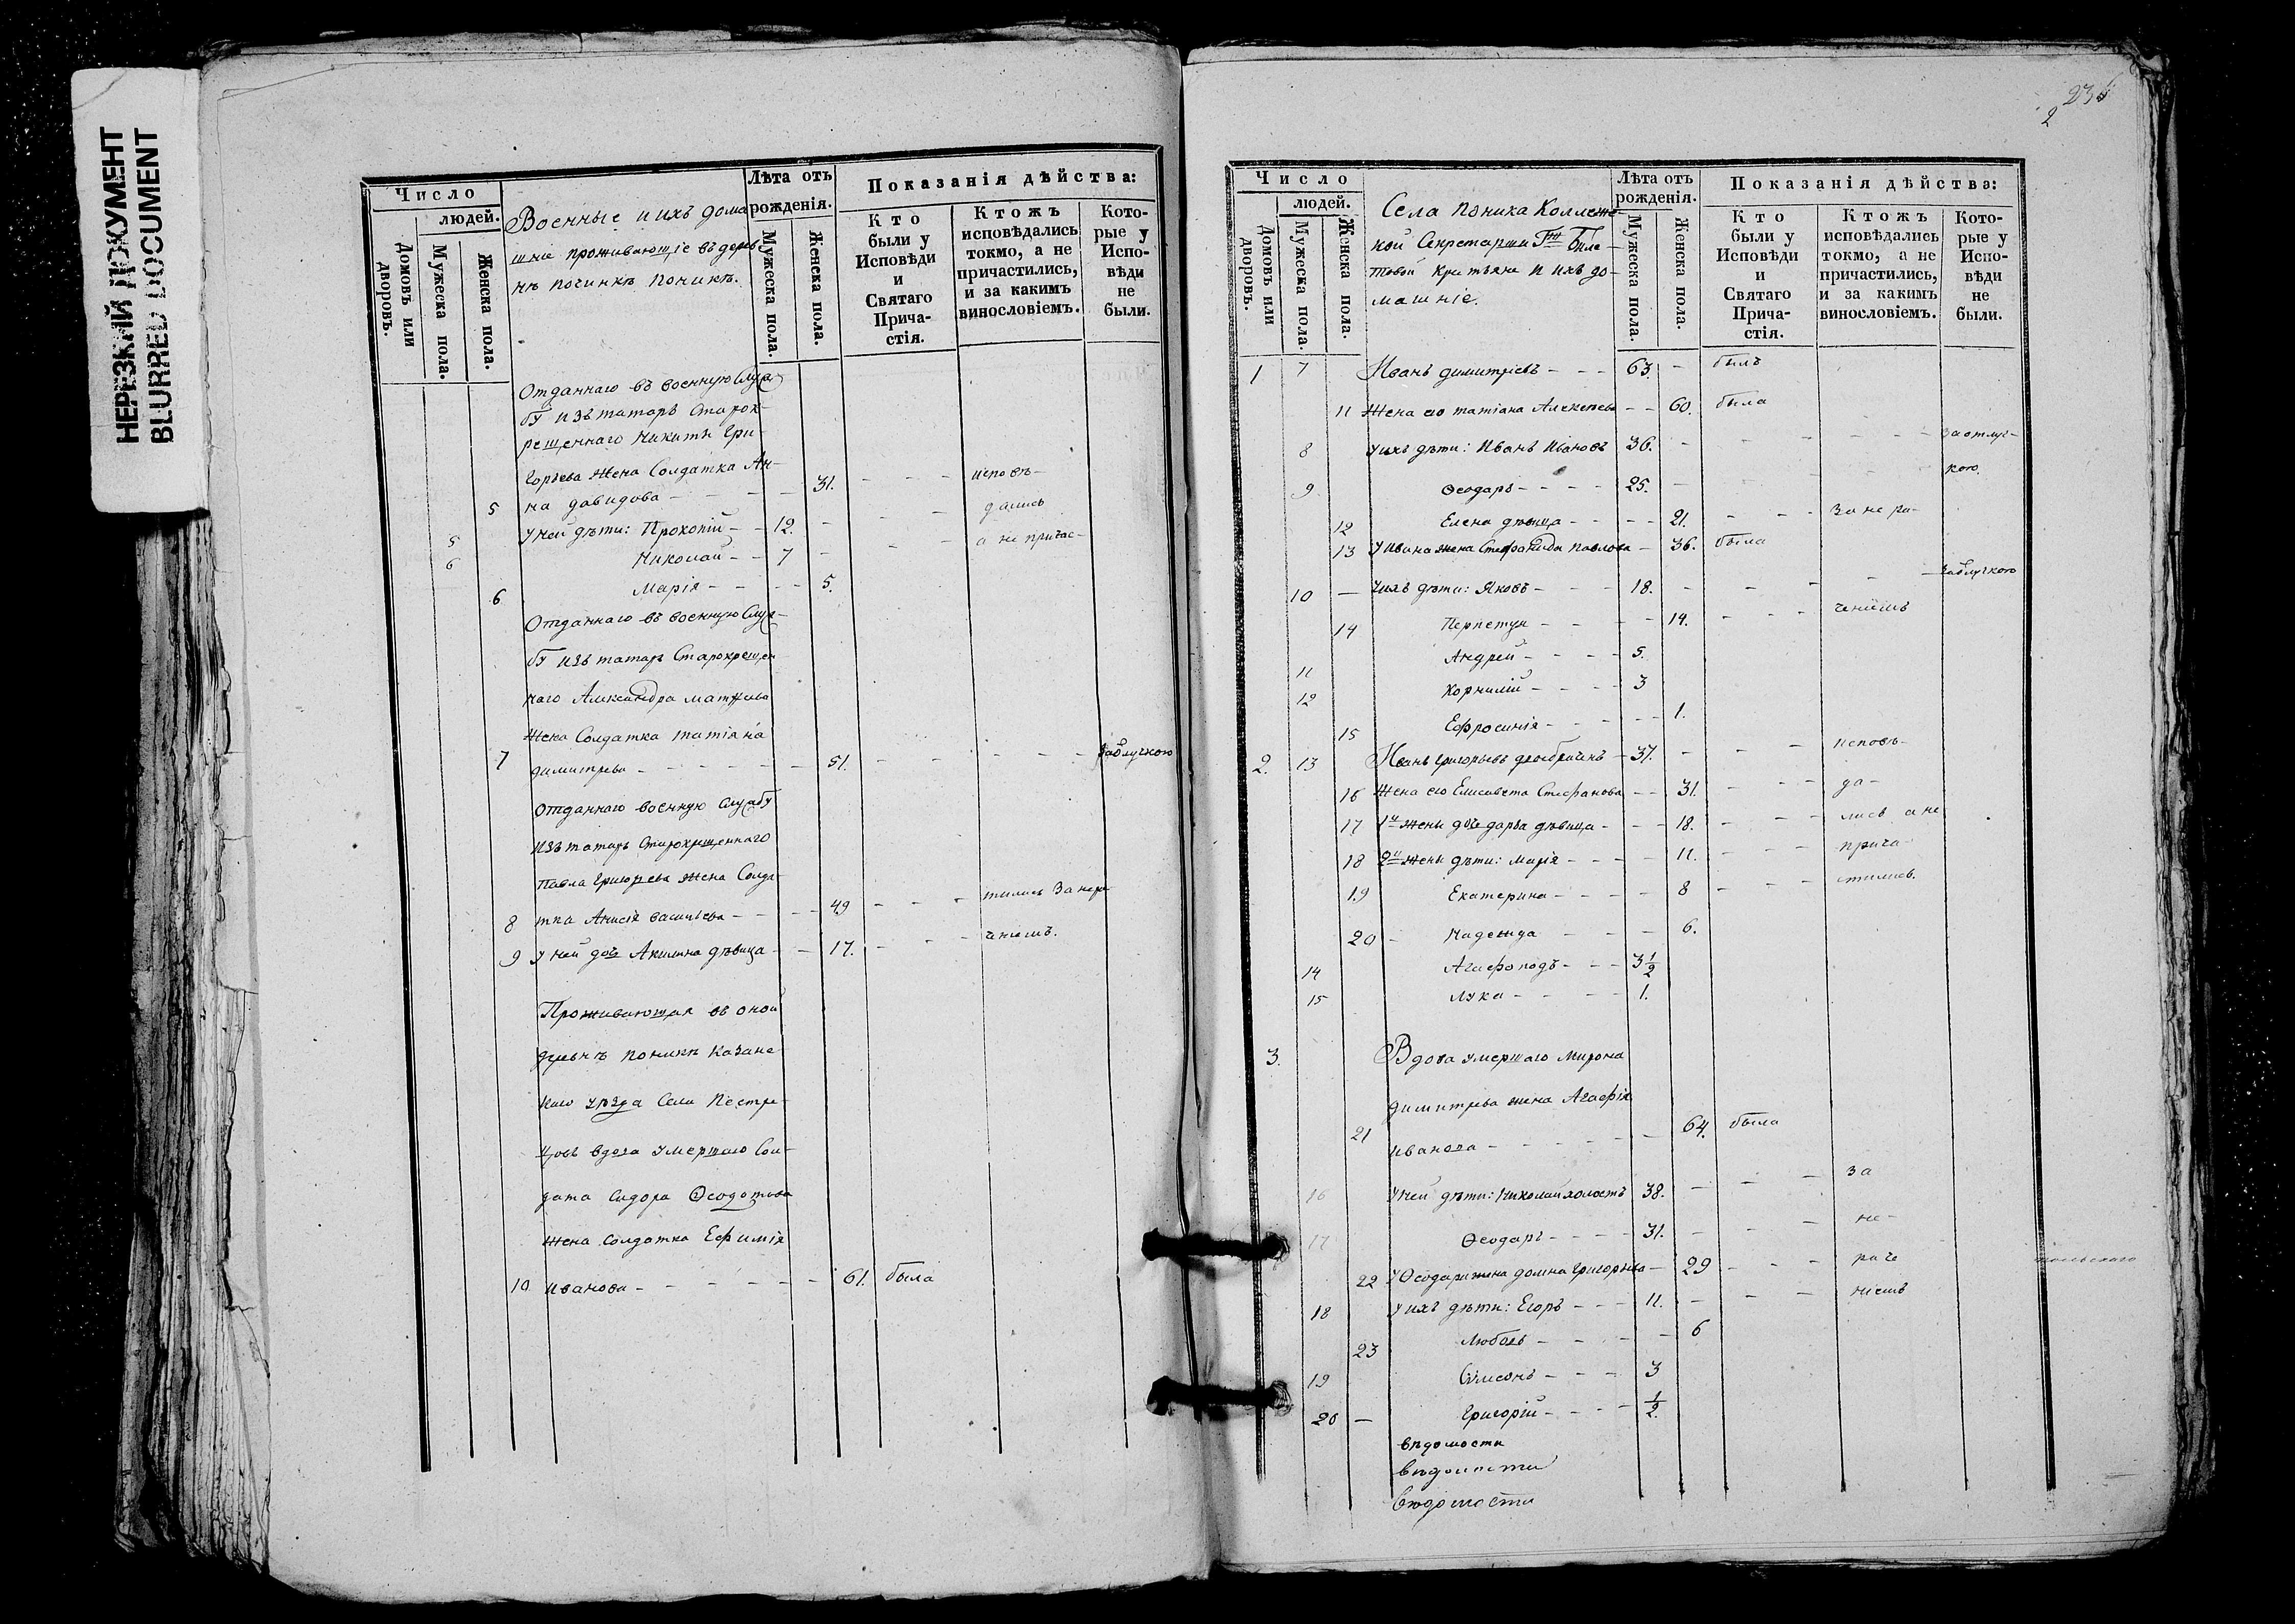 НЕРЕЗКИЙ ДОКУМЕНТ
BLURRED DOCUMENT
Число
людей.
Домовъ или дворовъ.
Мужеска пола.
Женска пола.
Военные и ихъ дома
шніе проживающіе въ дерев
нѣ починкѣ Поникѣ.
Лѣта отъ рожденія.
Мужеска пола.
Женска пола.
Показанія дѣйства:
Кто были у Исповѣди и Святаго Прича- стія.
Ктожъ исповѣдались токмо, а не причастились, и за какимъ винословіемъ.
Кото- рые у Испо- вѣди не были.
Отданнаго въ военную Служ
бу изъ татаръ Старок-
рещеннаго Никиты Гри-
горьева жена Солдатка Ан-
5 на Давидова - - - 31. - - - исповѣ-
5 У ней дѣти: Прокопій - - 12. - - - дались
6 Николай - - 7 - - - а не причас-
6 Марія - - - - 5.
Отданнаго въ военную Служ-
бу изъ татаръ Старокрещен
наго Александра Матвѣева
жена Солдатка Татіяна
7 Димитрева - - - - - 51. - - - - - заотлучкою
Отданнаго военную Службу
изъ татаръ Старокрещеннаго
Павла Григорьева жена Солда-
8 тка Анисія Васильева - - - 49 - - - тились За нера
9 У ней доч Акилина дѣвица - - 17. - - - ченіемъ.
Проживающая въ оной
деревнѣ Поникѣ Казанс
каго уѣзда Села Пестре-
цовъ вдова умершаго Сол-
дата Сидора Ѳедотова
жена Солдатка Ефимія
10 Иванова - - - - - - 61. была
236
2
Число
людей.
Домовъ или дворовъ.
Мужеска пола.
Женска пола.
Села Поника Коллежс-
кой Секретарши Гжи
товой крестьяне и ихъ до-
машніе.
Лѣта отъ рожденія.
Мужеска пола.
Женска пола.
Показанія дѣйства:
Кто были у Исповѣди и Святаго Прича- стія.
Ктожъ исповѣдались токмо, а не причастились, и за какимъ винословіемъ.
Кото- рые у Испо- вѣди не были.
1 7 Иванъ Димитріевъ - - - 63. - былъ
11 Жена его Татіана Алексѣева - - 60. была
8 У ихъ дѣти: Иванъ Ивановъ 36. - - - - - заотлуч-
9 Ѳеодаръ - - - - 25. - кою.
12 Елена дѣвица - - - - 21. - - - За не ра-
13 У Ивана жена Степанида Павлова - 36. была
10 - У ихъ дѣти: Яковъ - - - 18. - - - - - заотлучкою
14 Перпетуя - - - - 14. - - - ченіемъ
11 Андрей - - - - 5.
12 Корнилій - - - - 3
15 Ефросинія - - - - 1.
2. 13 Иванъ Григорьевъ - 37. - - - исповѣ-
16 Жена его Елисавета Стефанова - - 31. - - - да-
17 1й жены доч Дарья дѣвица - - - 18. - - - лись а не
18 2й жены дѣти: Марія - - - - 11. - - - прича-
19 Екатерина - - - - 8 - - - стились.
20 - Надежда - - - 6.
14 Агафоподъ - - - 3 1/2
15 Лука - - - - 1.
3. Вдова умершаго Мирона
Димитрева жена Агафія
21 Иванова - - - - - 64. была
16 У ней дѣти: Николай холостъ 38. - - - за
17 Ѳеодаръ - - - - 31. - - - не-
22 У Ѳеодара жена Домна Григорьева - 29 - - - раче
18 У ихъ дѣти: Егоръ - - - 11. - - - ніемъ
23 Любовь - - - - 6
19 Сѵмеонъ - - - 3
20 - Григорій - - - - 1/2.
вѣдомости
вѣдомости
вѣдомости